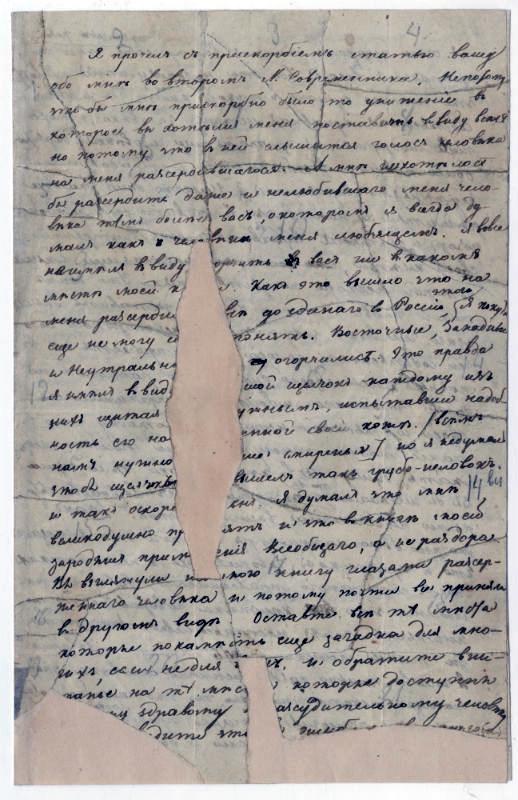 2 3 4
Я прочелъ съ прискорбіемъ статью вашу
обо мнѣ во второмъ № Современника. Не потому
что бы мнѣ прискорбно было то униженіе въ
которое вы хотѣли меня поставить въ виду всѣхъ
но потому что въ ней слышится голосъ человѣка
на меня разсердившагося. А мнѣ не хотѣлось
бы разсердить даже и нелюбившаго меня чело-
вѣка тѣмъ болѣе васъ, о которомъ я всегда ду
малъ какъ о человѣкѣ меня любящемъ. Я вовсе
не имѣлъ въ виду огорчить васъ ни в какомъ
мѣстѣ моей к Какъ это вышло что на
меня разсерди до еднаго въ Россіи этого я покуда
еще не могу понять. Восточные, Западные
и Неутраль огорчились. Это правда
я имѣлъ въ вид шой щелчокъ каждому изъ
нихъ щитая ужнымъ, испытавши надоб
ность его на енной своей кожѣ. [всѣмъ
намъ нужно смиренья] но я не думалъ
чтобъ щел вышелъ такъ грубо-неловокъ
и такъ оскор Я думалъ что мнѣ
великодушно пр ятъ и что въ книгѣ моей
зародышъ прим енія Всеобщаго, а не раздора
Вы взглянули на мою книгу глазами разсер-
женнаго человѣка и потому почти все приняли
въ другомъ видѣ. Оставьте всѣ тѣ мѣста
которые покамѣстъ еще загадка для мно-
гихъ, если не для и обратите вни-
манье на тѣ мѣс которые доступны
здравому разсудительному человѣку